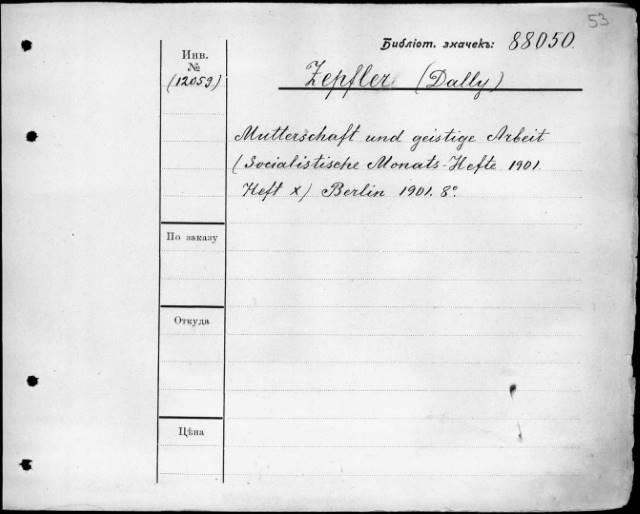 53
Библіот. значекъ: 88050.
Инв.
№
(12059)
Zepfler (Dally)
Mutterschaft und geistige Arbeit
(Socialistische Monats-Hefte 1901.
Heft X) Berlin 1901. 8º.
По заказу
Откуда
Цѣна